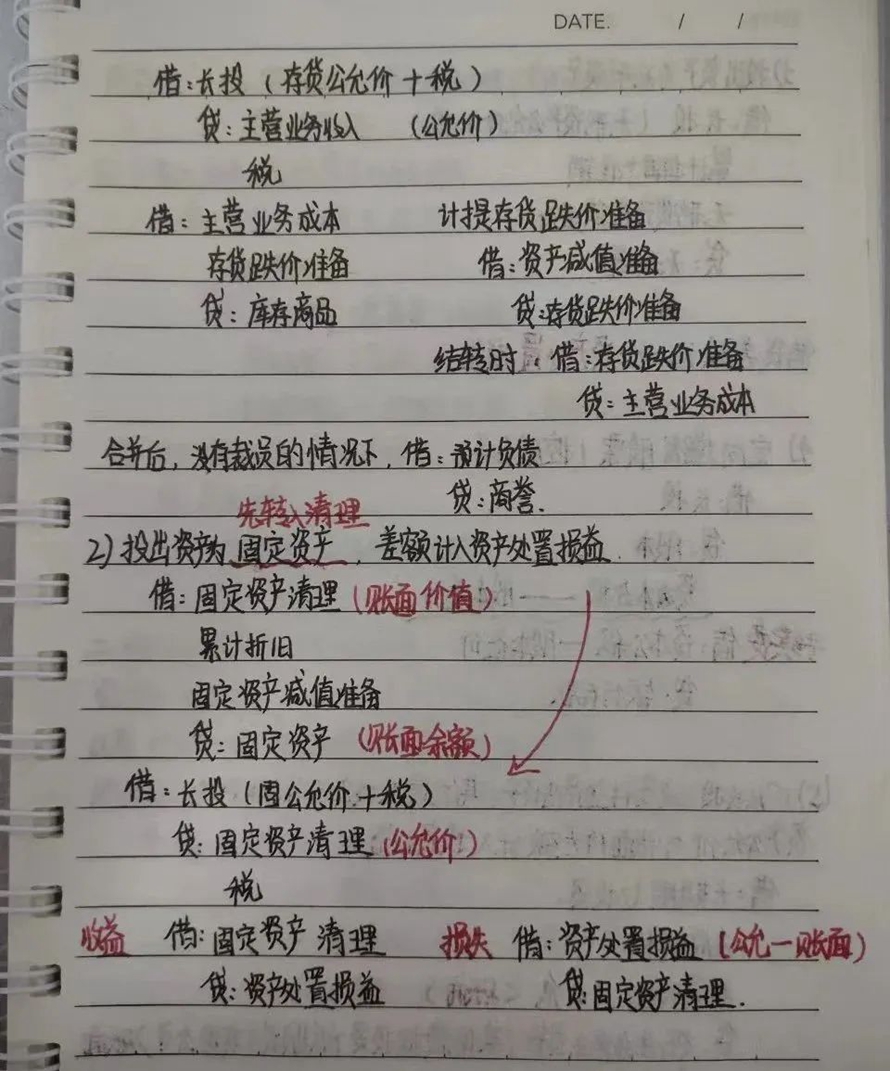 DATE. / /
借：长投（存货公允价＋税）
贷：主营业务收入 （公允价）
税
借：主营业务成本 计提存货跌价准备
存货跌价准备 借：资产减值准备
贷：库存商品 贷：存货跌价准备
结转时：借：存货跌价准备
贷：主营业务成本
合并后，没有裁员的情况下，借：预计负债
贷：商誉.
先转入清理
2）投出资产为 固定资产，差额计入资产处置损益.
借：固定资产清理（账面价值）
累计折旧
固定资产减值准备
贷：固定资产 （账面余额）
借：长投（固公允价＋税）
贷：固定资产清理（公允价）
税
收益 借：固定资产清理 损失 借：资产处置损益（公允－账面）
贷：资产处置损益 贷：固定资产清理.